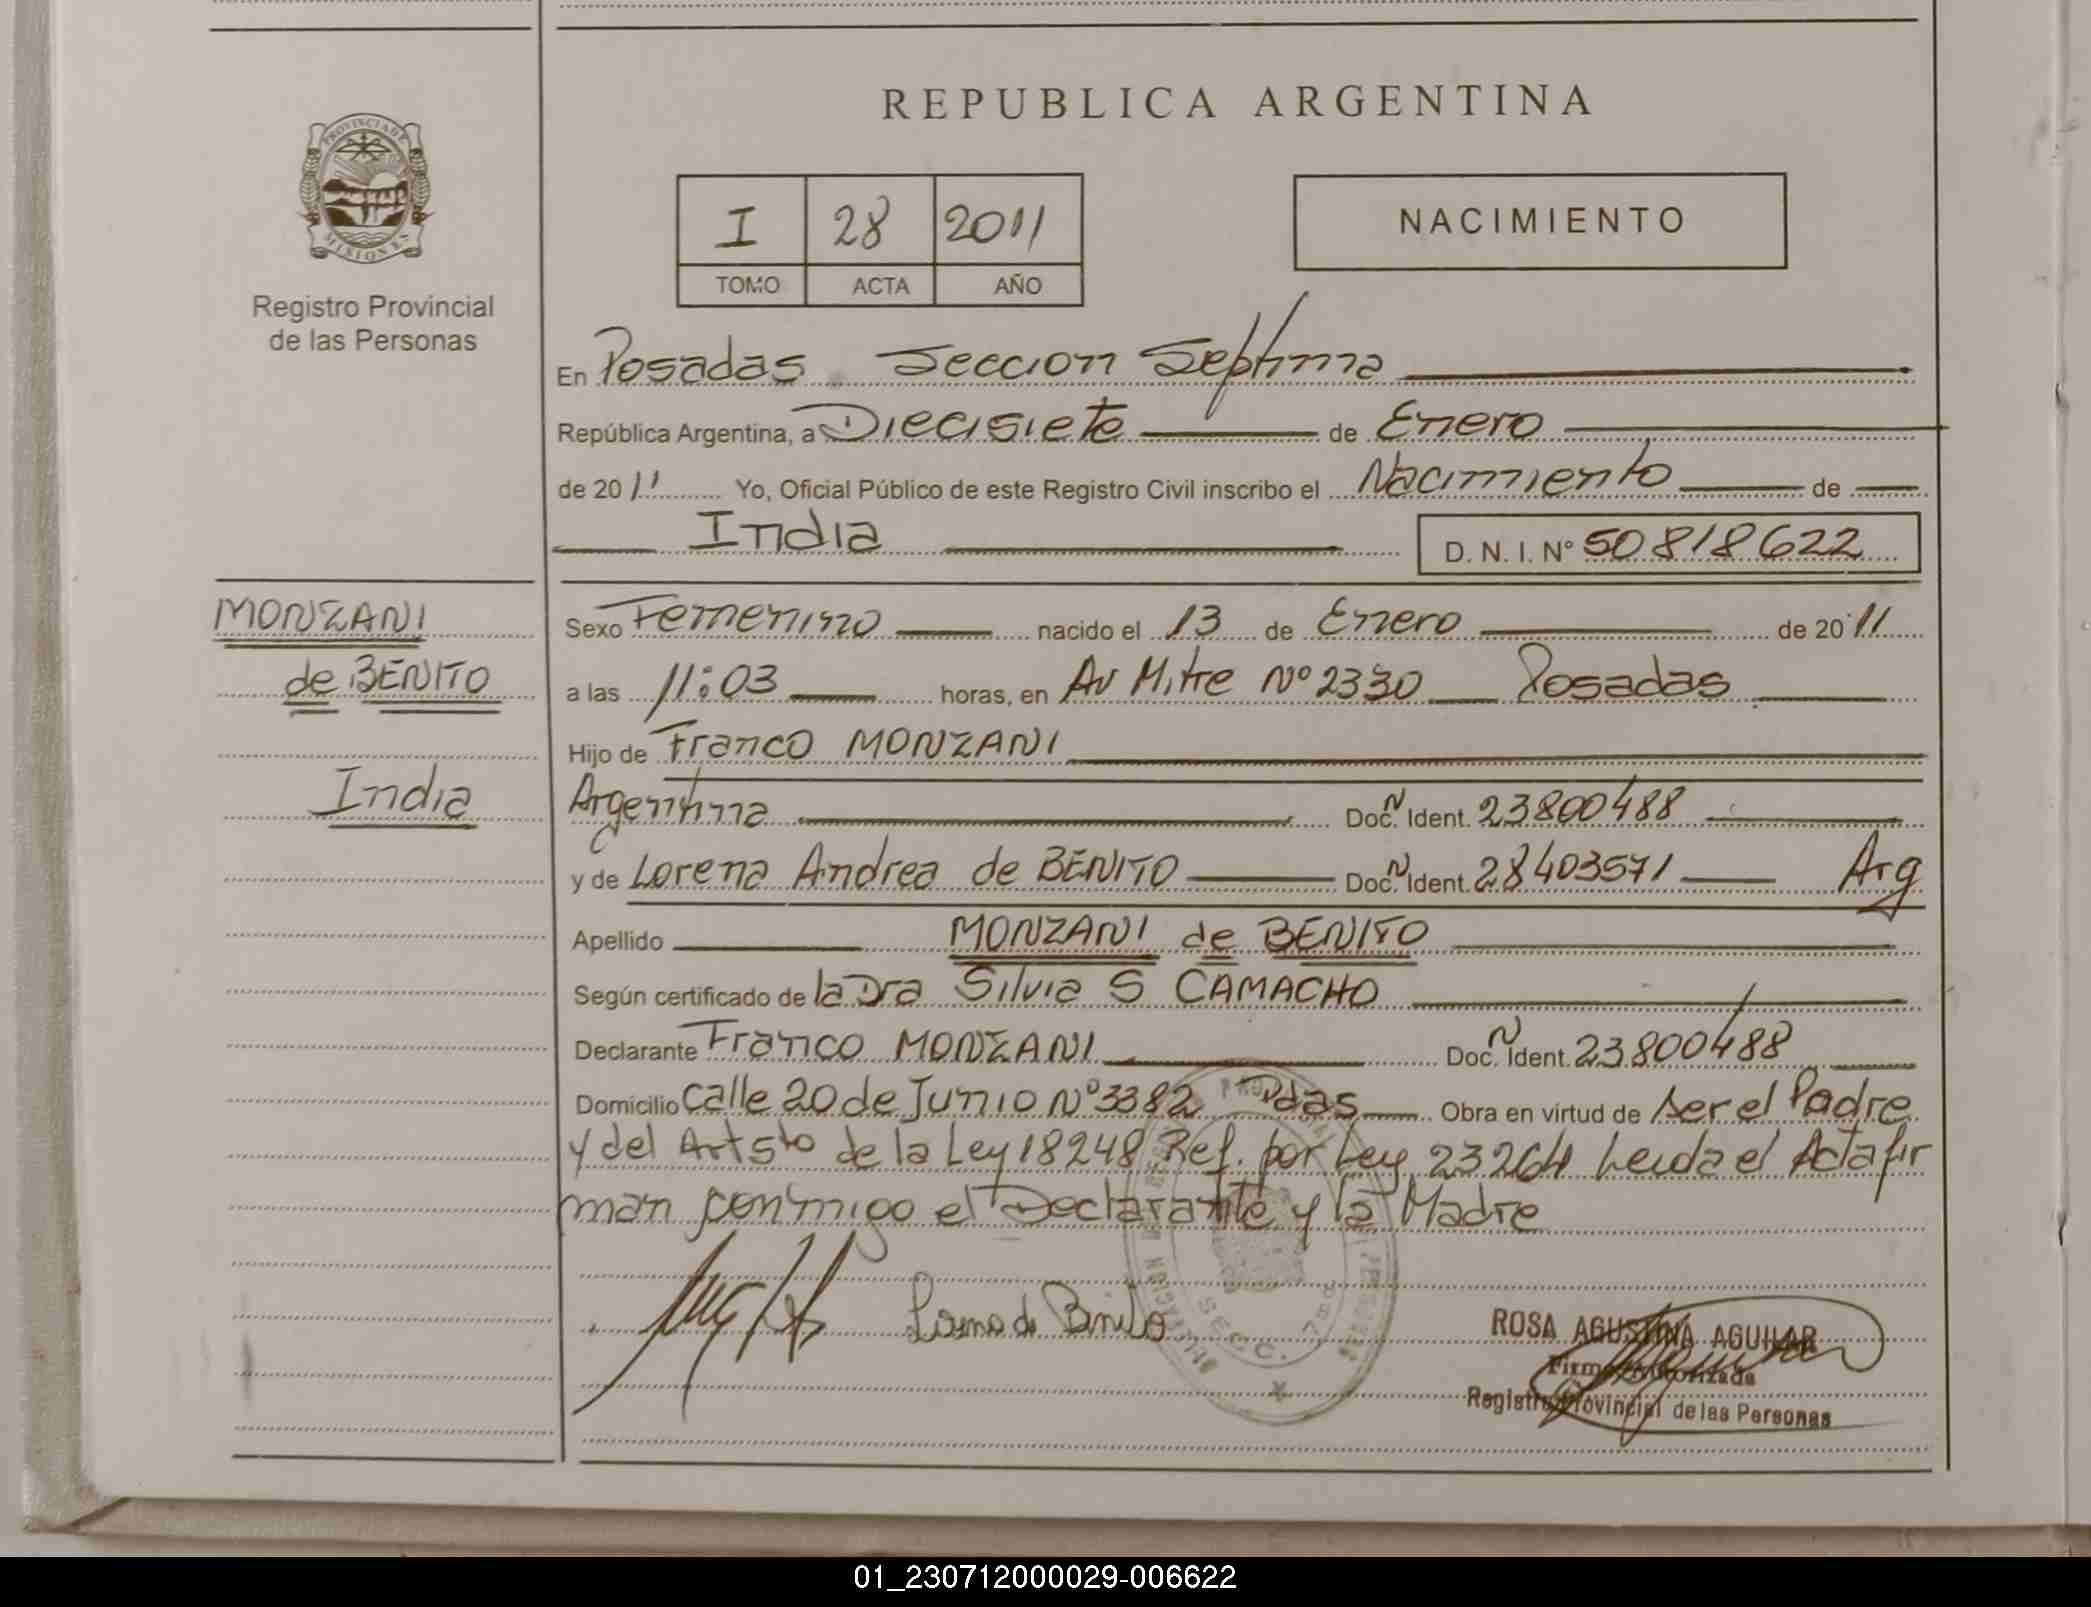 REPUBLICA ARGENTINA
PROVINCIA DE
MISIONES
Registro Provincial
de las Personas
I 28 2011
TOMO ACTA AÑO
NACIMIENTO
En Posadas Seccion Septima
República Argentina, a Diecisiete de Enero
de 2011 Yo, Oficial Público de este Registro Civil inscribo el Nacimiento de
India D. N. I. Nº 50818622
MONZANI
de BENITO
India
Sexo Femenino nacido el 13 de Enero de 2011
a las 11:03 horas, en Av Mitre Nº 2330 Posadas
Hijo de Franco MONZANI
Argentina Doc. N Ident. 23800488
y de Lorena Andrea de BENITO Doc. N Ident. 28403571 Arg
Apellido MONZANI de BENITO
Según certificado de la Dra Silvia S CAMACHO
Declarante Franco MONZANI Doc. N Ident. 23800488
Domicilio Calle 20 de Junio Nº 3382 Pdas Obra en virtud de ser el Padre
y del Art 5to de la Ley 18248 Ref. por Ley 23264 Leida el Acta fir
man conmigo el Declarante y la Madre
Lorena de Benito
SECC. 7ma
ROSA AGUSTINA AGUILAR
Firma Autorizada
Registro Provincial de las Personas
01_230712000029-006622